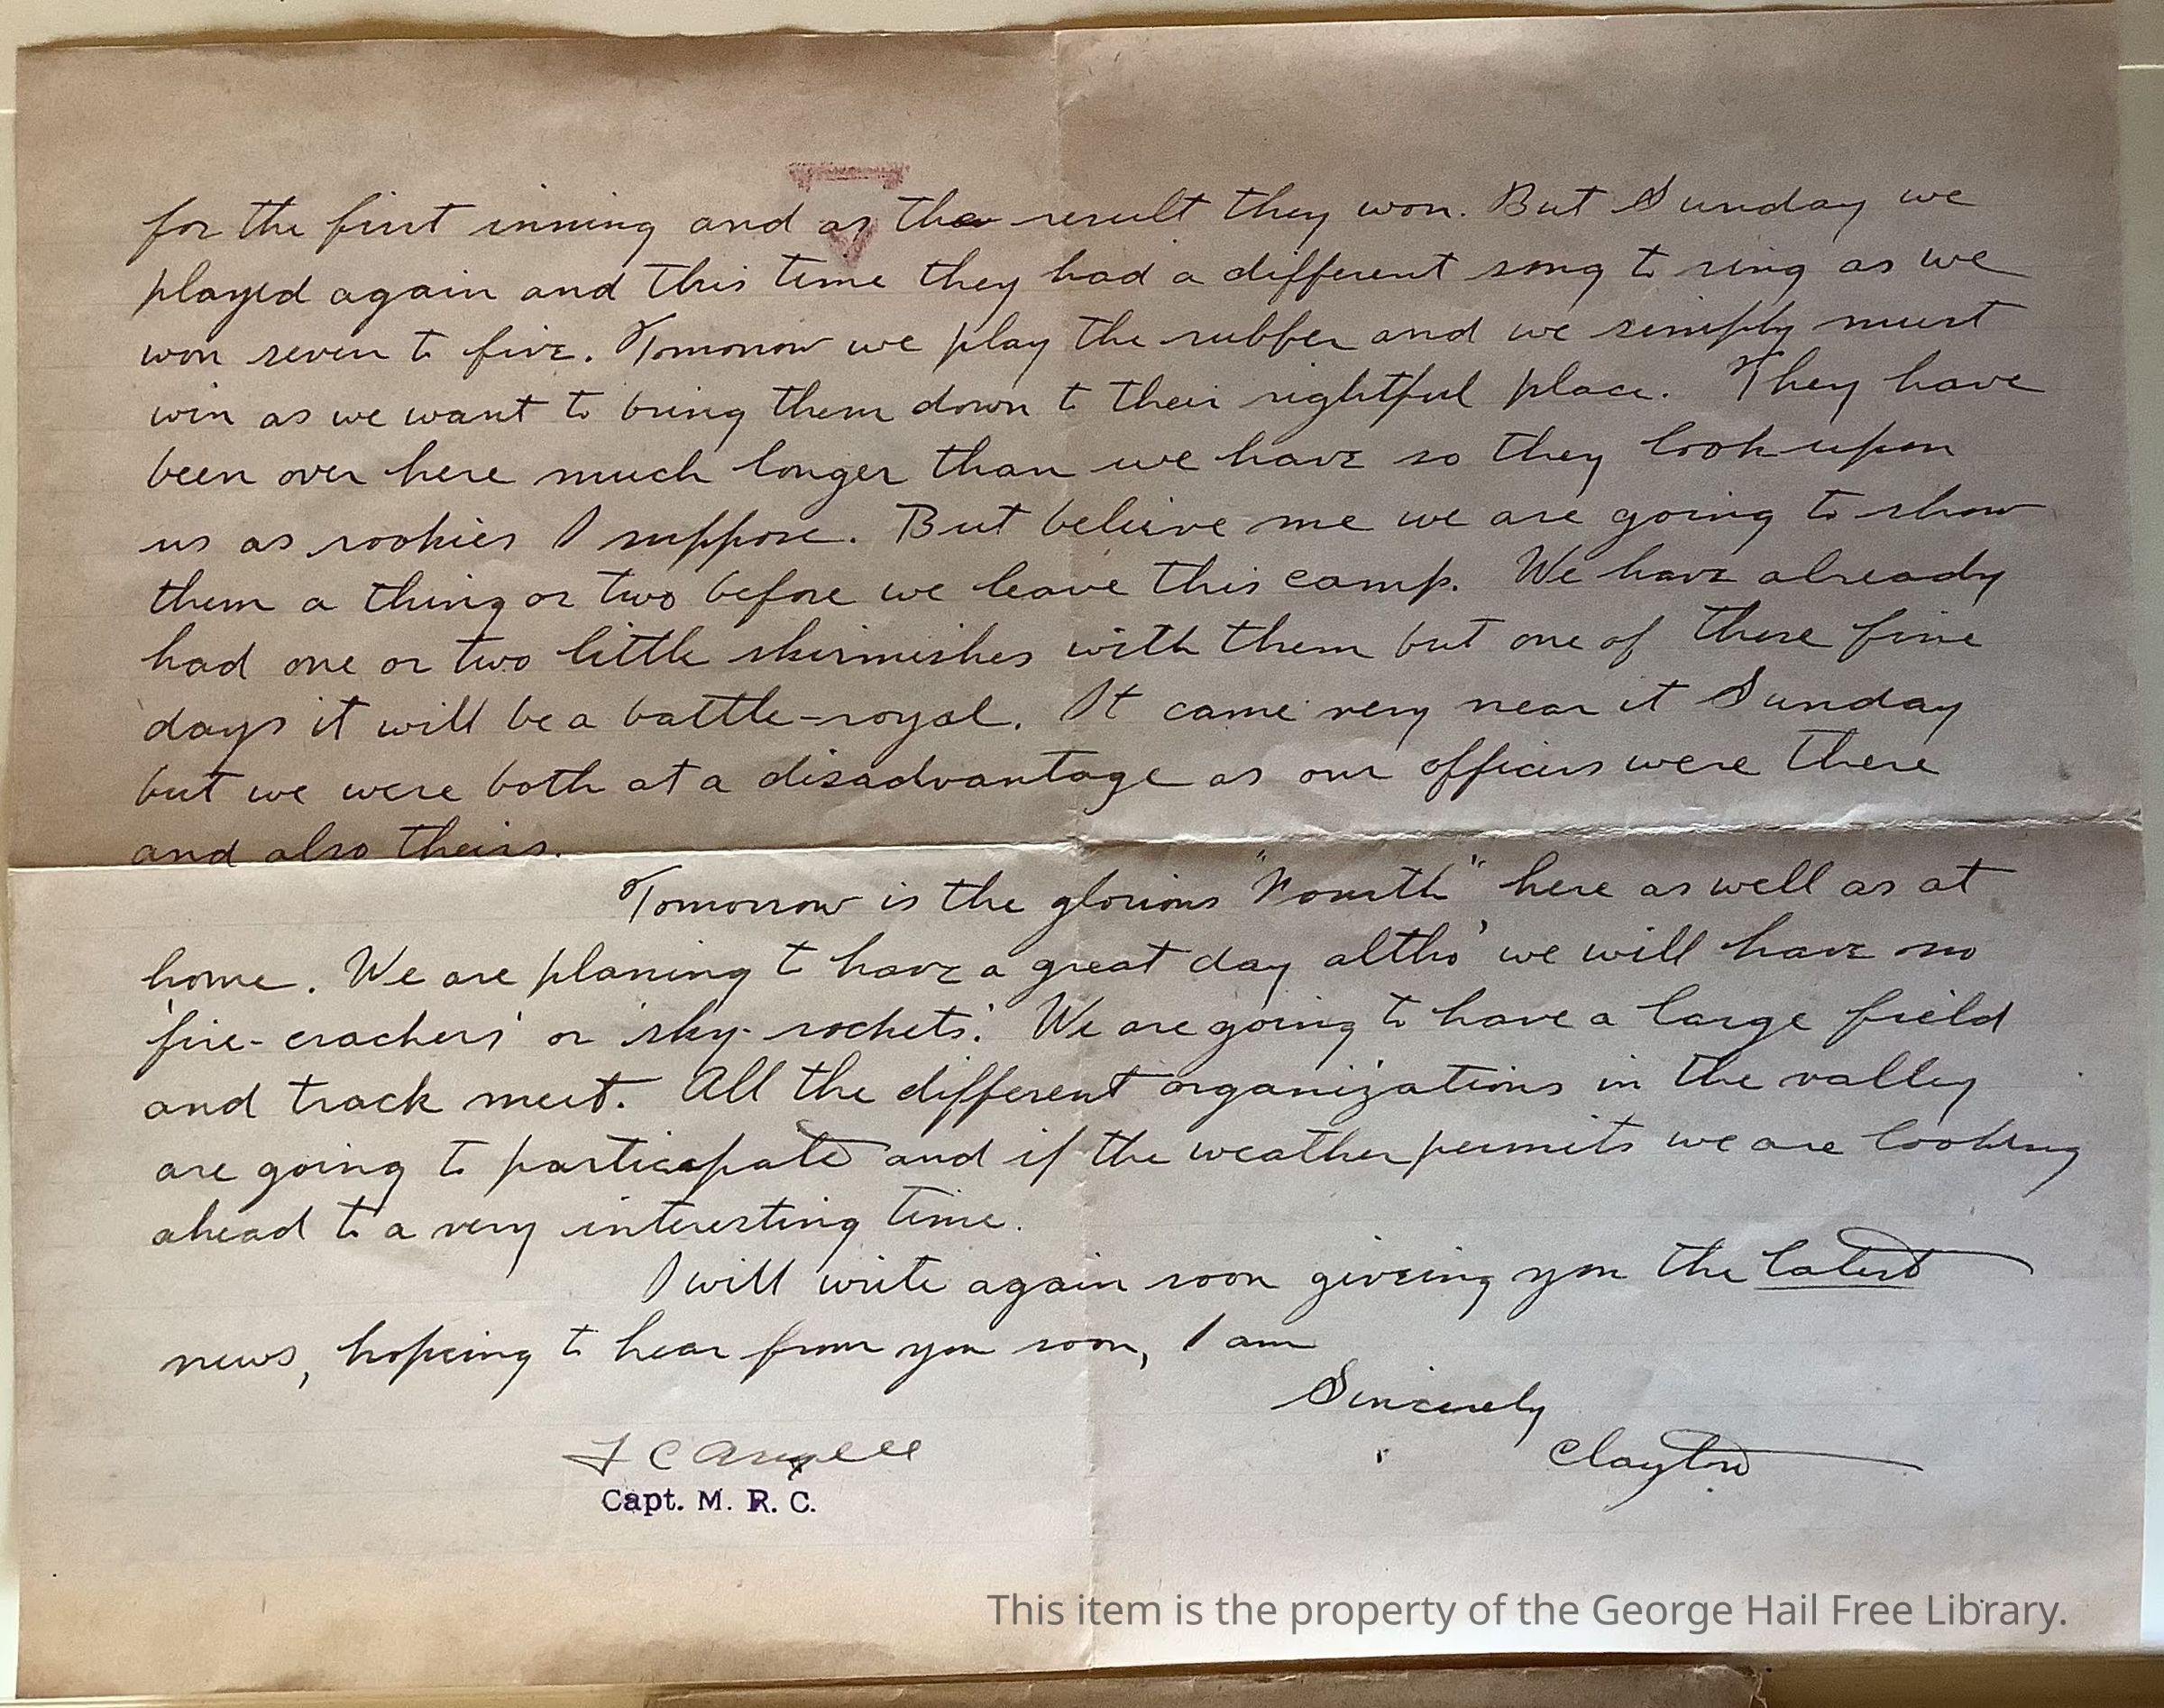 for the first inning and as the result they won. But Sunday we
played again and this time they had a different song to sing as we
won seven to five. Tomorrow we play the rubber and we simply must
win as we want to bring them down to their rightful place. They have
been over here much longer than we have so they look upon
us as rookies I suppose. But believe me we are going to show
them a thing or two before we leave this camp. We have already
had one or two little skirmishes with them but one of these fine
days it will be a battle-royal. It came very near it Sunday
but we were both at a disadvantage as our officers were there
and also theirs.
Tomorrow is the glorious "Fourth" here as well as at
home. We are planing to have a great day altho' we will have no
'fire-crackers' or 'sky-rockets'. We are going to have a large field
and track meet. All the different organizations in the valley
are going to participate and if the weather permits we are looking
ahead to a very interesting time.
I will write again soon giving you the latest
news, hoping to hear from you soon, I am
Sincerely
Clayton
Capt. M. R. C.
This item is the property of the George Hail Free Library.